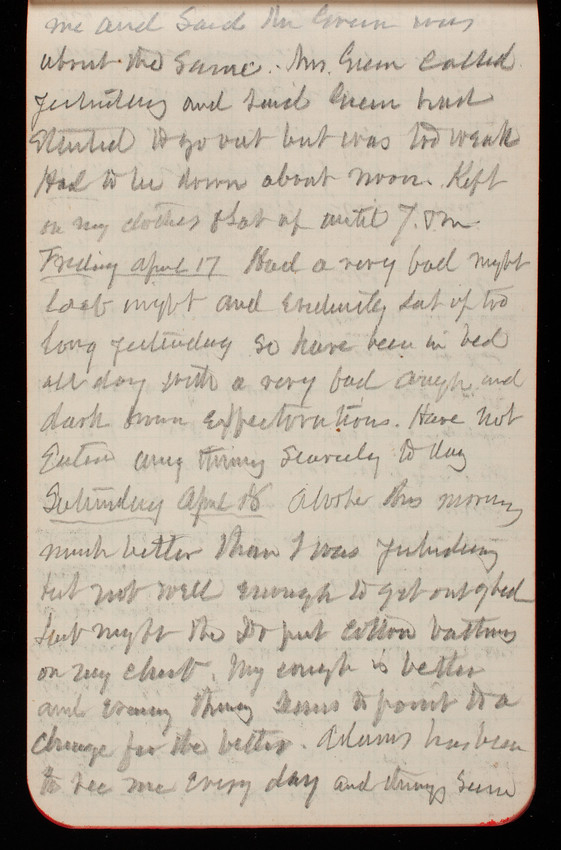 me and said Mr Green was
about the same. Mrs. Green called
yesterday and said Green had
started to go out but was too weak
Had to lie down about noon. Kept
on my clothes & sat up until 7. Pm
Friday April 17 Had a very bad night
last night and evidently sat up too
long yesterday so have been in bed
all day with a very bad cough and
dark brown expectorations. Have not
Eaten any thing scarcely to day
Saturday April 18 Awoke this morning
much better than I was yesterday
but not well enough to get out of bed
Last night the Dr put cotton batting
on my chest. My cough is better
and every thing seems to point to a
change for the better. Adams has been
to see me every day and things seem